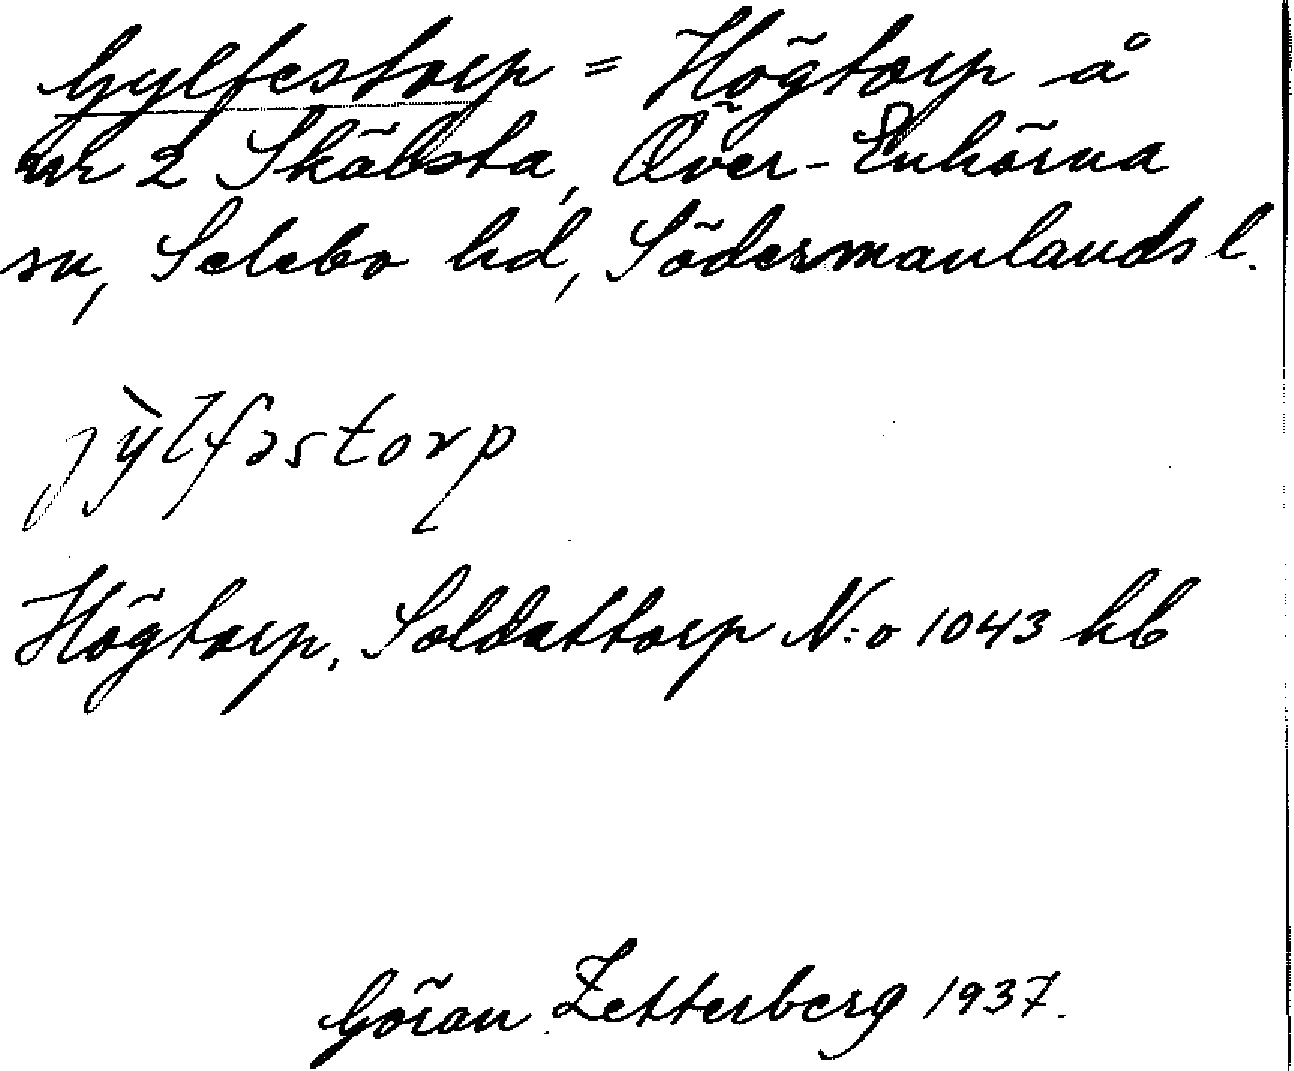 Gylfestorp = Högtorp å
nr 2 Skäbsta, Över-Enhörna
sn, Selebo hd, Södermanlands l.
jy̌lfəstorp
Högtorp, Soldattorp N:o 1043 hb
Göran Zetterberg 1937.